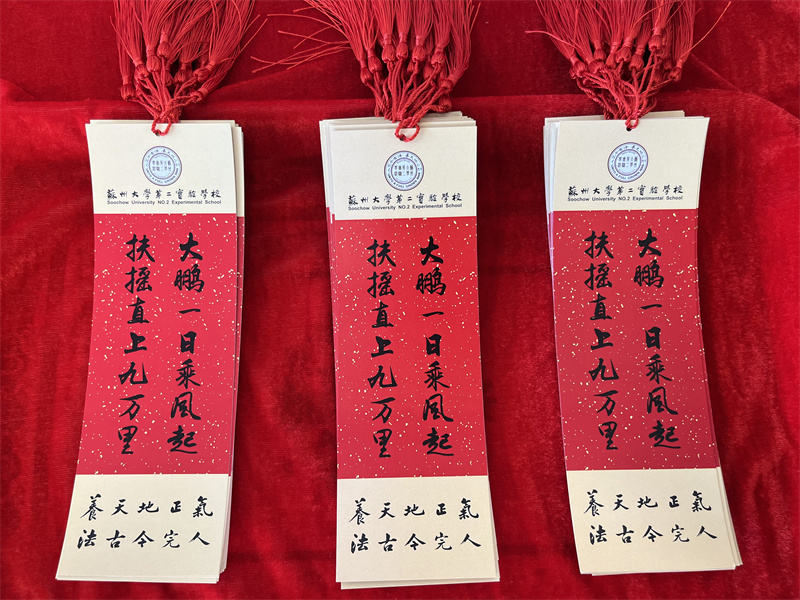 蘇州大學第二實驗學校
Soochow University NO.2 Experimental School
大鹏一日乘风起
扶摇直上九万里
養天地正氣
法古今完人
蘇州大學第二實驗學校
Soochow University NO.2 Experimental School
大鹏一日乘风起
扶摇直上九万里
養天地正氣
法古今完人
蘇州大學第二實驗學校
Soochow University NO.2 Experimental School
大鹏一日乘风起
扶摇直上九万里
養天地正氣
法古今完人